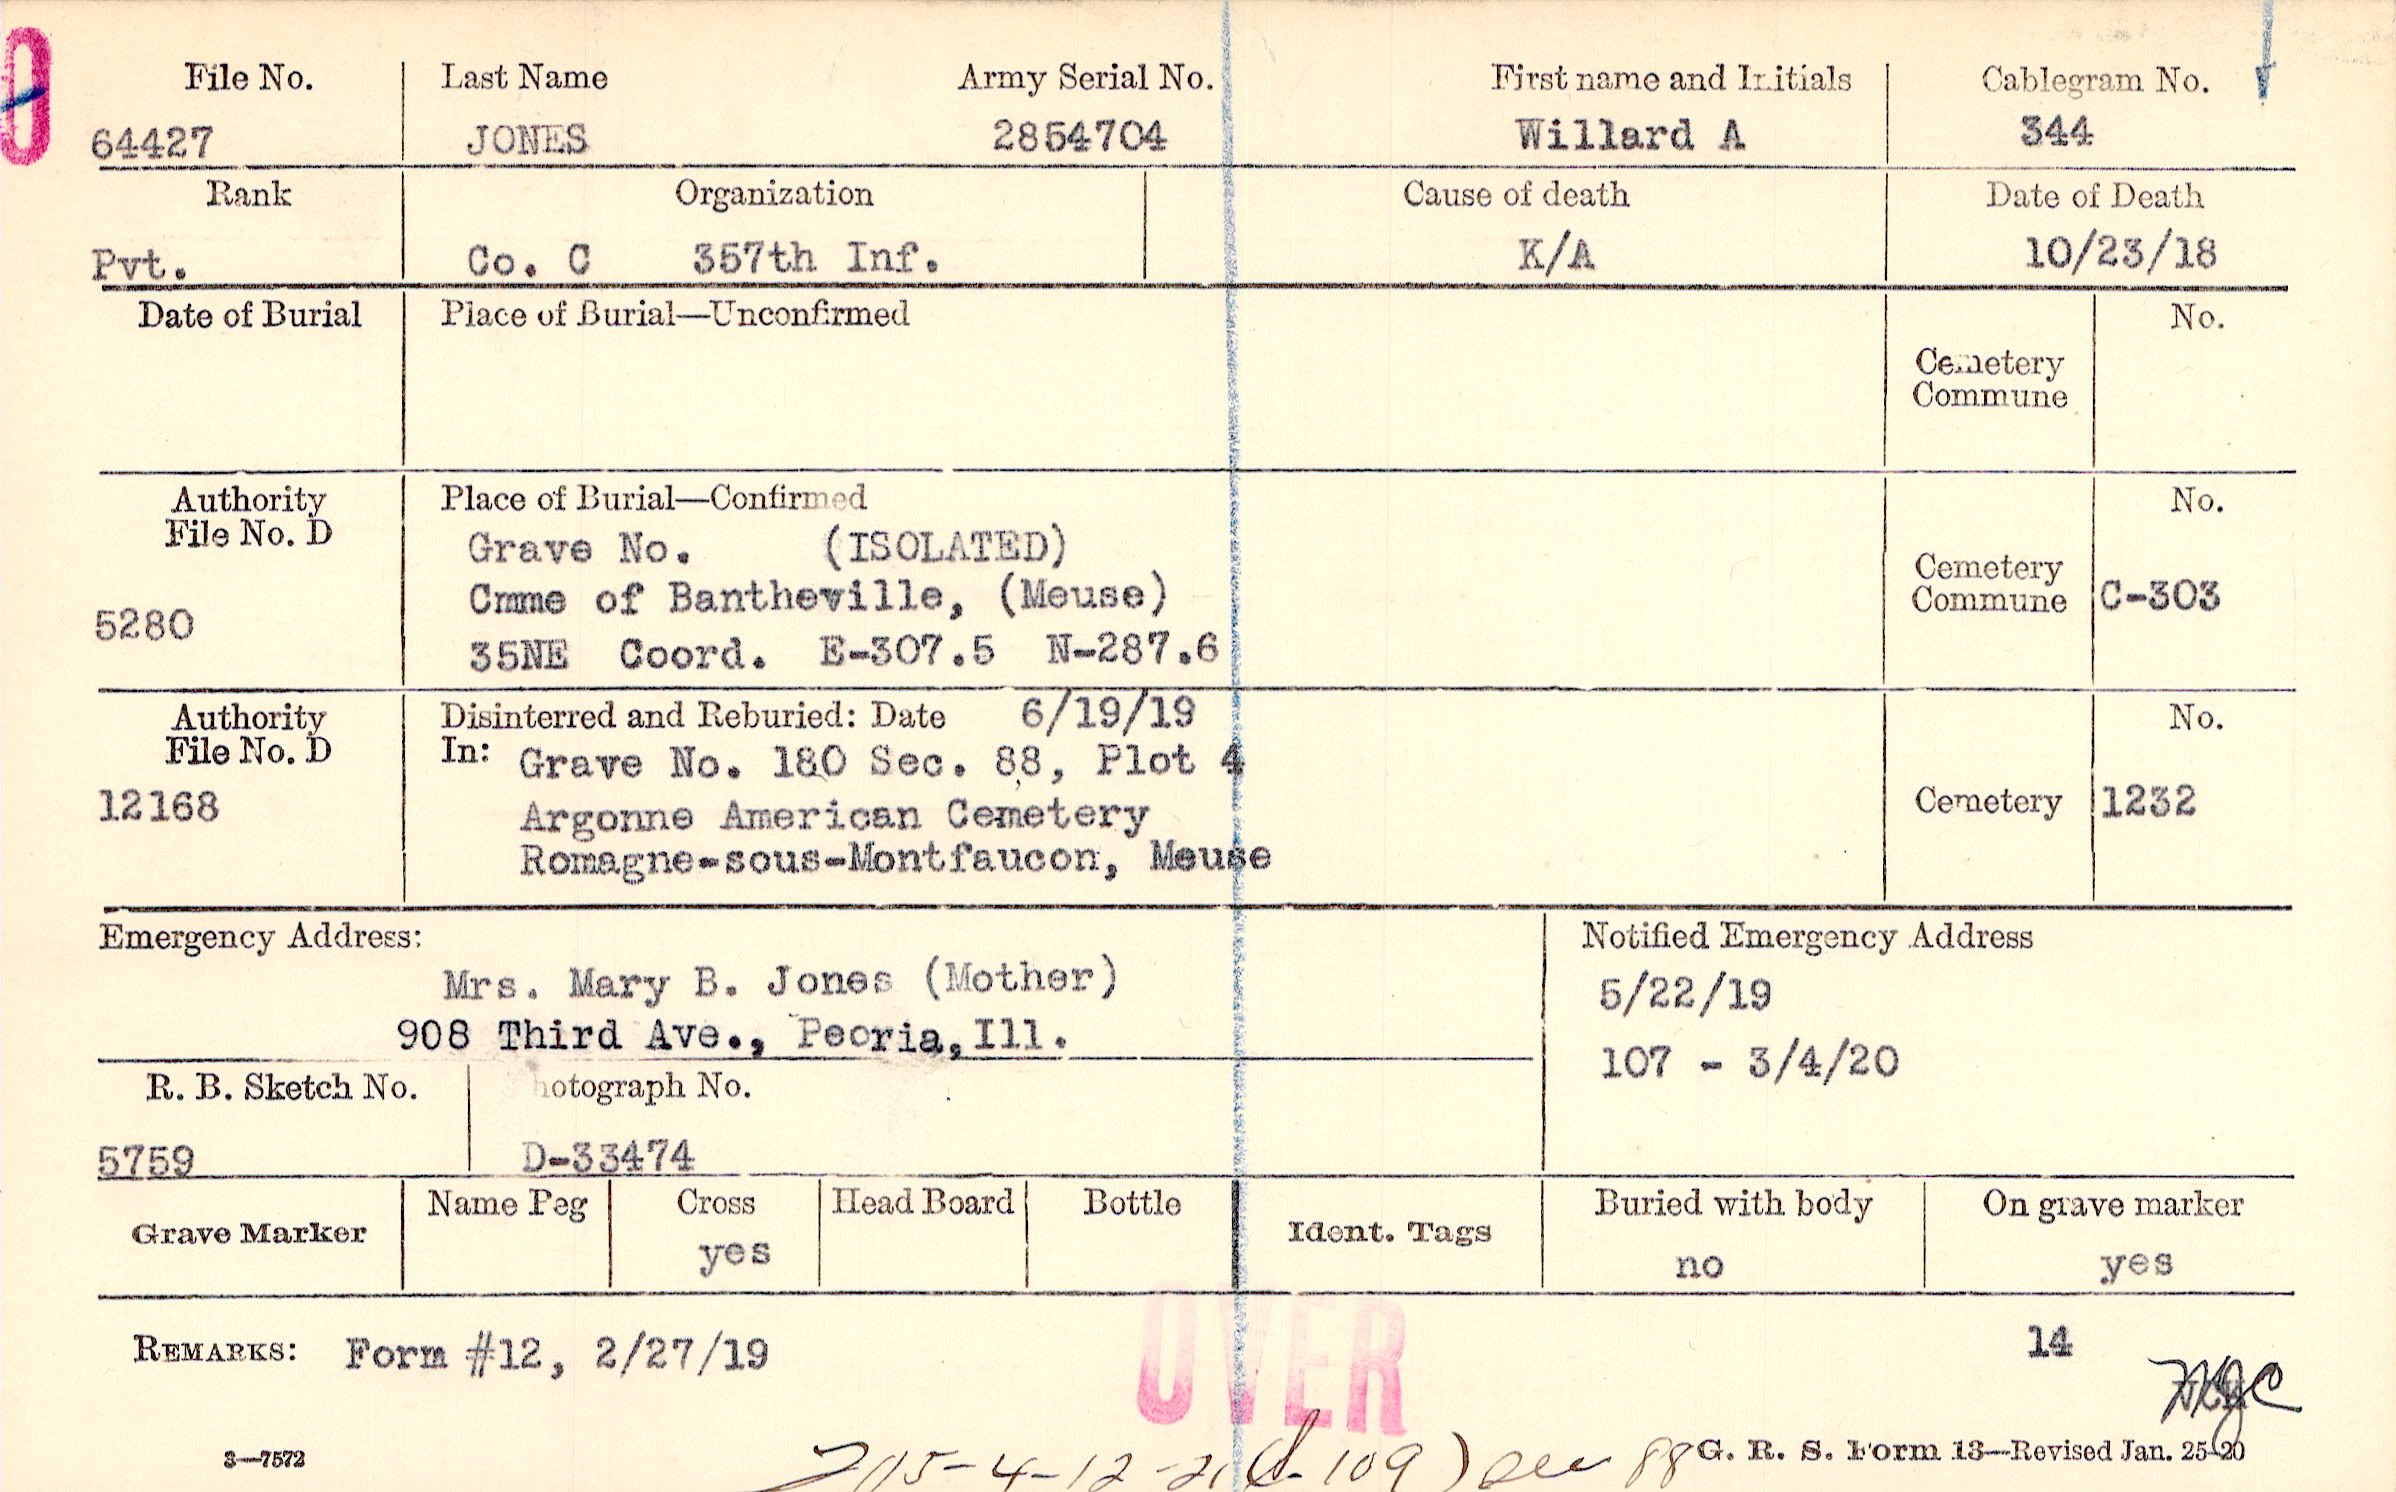 File No. Last Name Army Serial No. First name and Initials Cablegram No.
64427 JONES 2854704 Willard A 344
Rank Organization Cause of death Date of Death
Pvt. Co. C 357th Inf. K/A 10/23/18
Date of Burial Place of Burial—Unconfirmed No.
Cemetery
Commune
Authority Place of Burial—Confirmed No.
File No. D
Grave No. (ISOLATED)
Cmme of Bantheville, (Meuse)
Cemetery
Commune C-303
5280
35NE Coord. E-307.5 N-287.6
Authority Disinterred and Reburied: Date 6/19/19 No.
File No. D In: Grave No. 180 Sec. 88, Plot 4
12168 Argonne American Cemetery Cemetery 1232
Romagne-sous-Montfaucon, Meuse
Emergency Address: Notified Emergency Address
Mrs. Mary B. Jones (Mother) 5/22/19
908 Third Ave., Peoria, Ill.
107 - 3/4/20
R. B. Sketch No. hotograph No.
5759 D-33474
Grave Marker Name Peg Cross Head Board Bottle Ident. Tags Buried with body On grave marker
yes no yes
OVER
REMARKS: Form #12, 2/27/19 14
3—7572 G. R. S. Form 13—Revised Jan. 25-20
4-12-21 109) 88